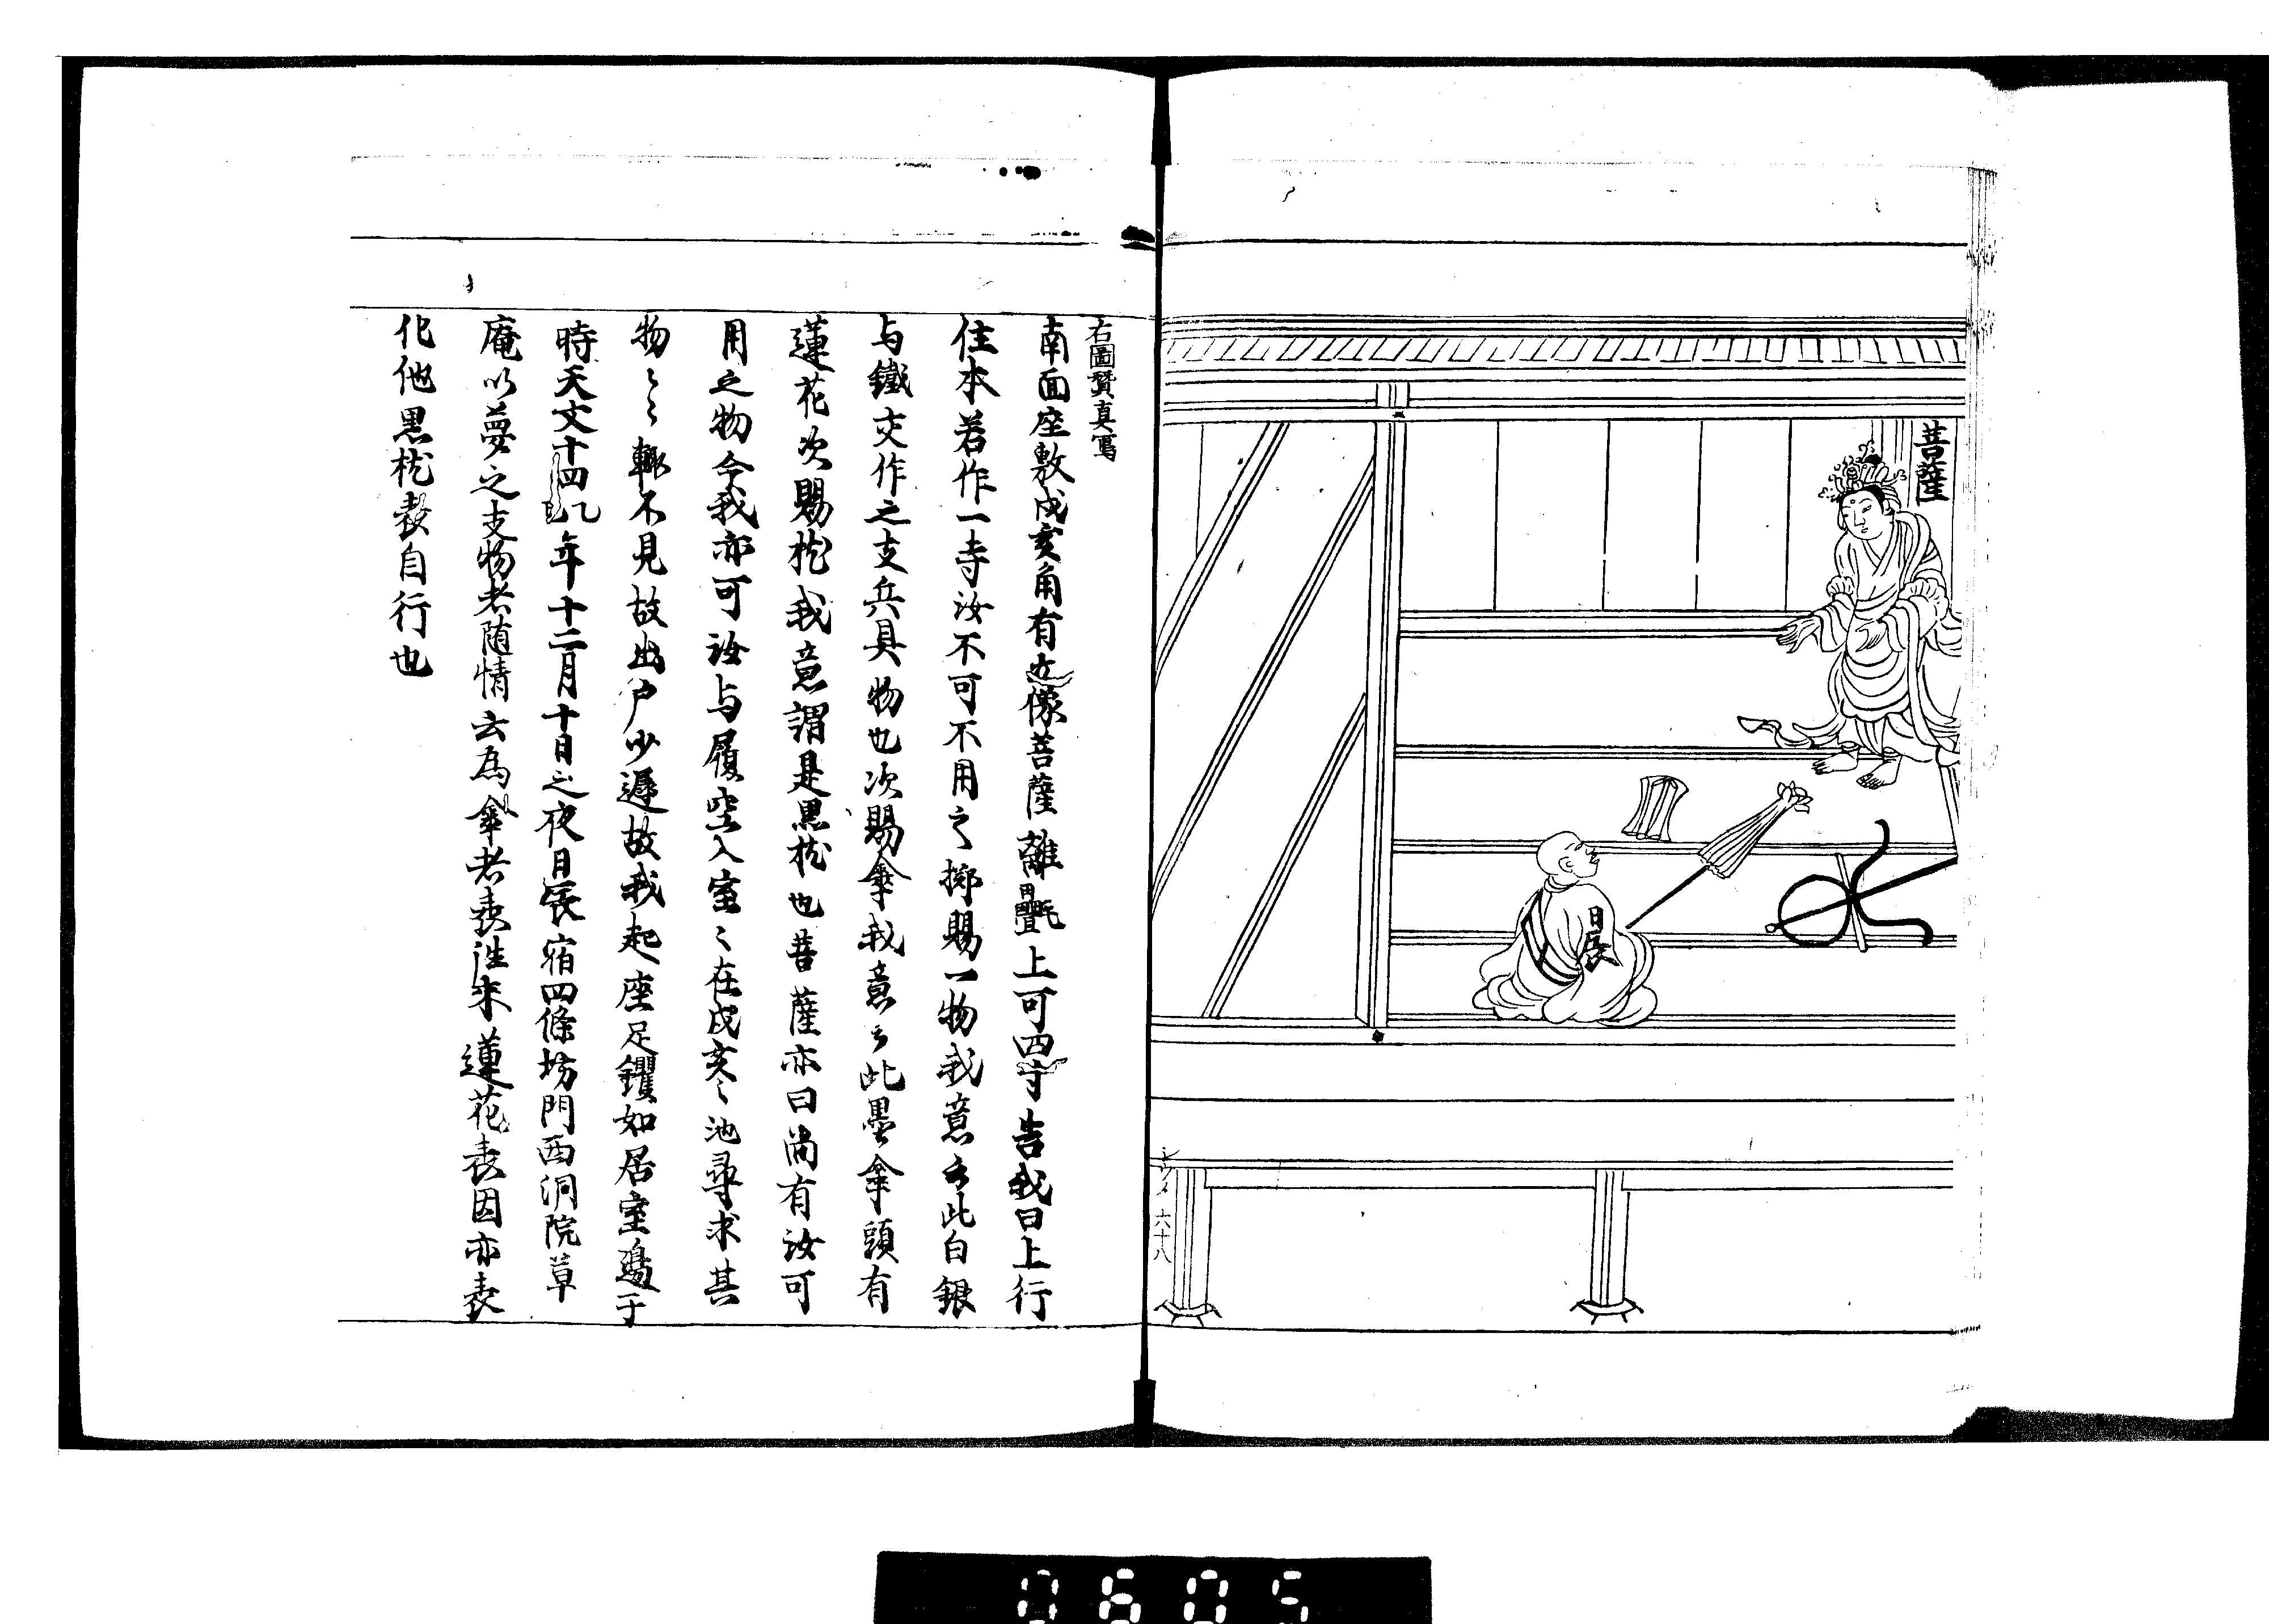 菩薩
日辰
六十八
右圖賛真寫
南面座敷戌亥角有立像菩薩離疊上可四寸告我曰上行
住本若作一寺汝不可不用之擲賜一物我意云此白銀
与鐵交作之支兵具物也次賜傘我意云此墨傘頭有
蓮花次賜枕我意謂是黒枕也菩薩亦曰尚有汝可
用之物今我亦可汝与履空入室〻在戌亥〻池尋求其
物〻〻輙不見故出户少遲故我起座足钁如居室邉于
時天文十四乙巳年十二月十日之夜日辰宿四條坊門西洞院草
庵以夢之支物者随情云為傘者表往来蓮花表因亦表
化他黒枕表自行也
0605